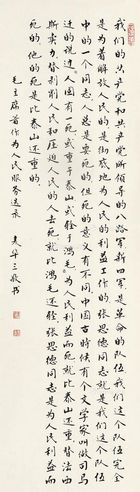 我们的共产党和共产党所领导的八路军新四军是革命的队伍我们这个队伍完全
是为着解放人民的是彻底地为人民的利益工作的张思德同志就是我们这个队伍
中的一个同志人总是要死的但死的意义有不同中国古时候有个文学家叫做司马
迁的说过人固有一死或重于泰山或轻于鸿毛为人民利益而死就比泰山还重替法西
斯卖力替剥削人民和压迫人民的去死就比鸿毛还轻张思德同志是为人民利益而
死的他的死是比泰山还重的
毛主席著作为人民服务选录 敬书